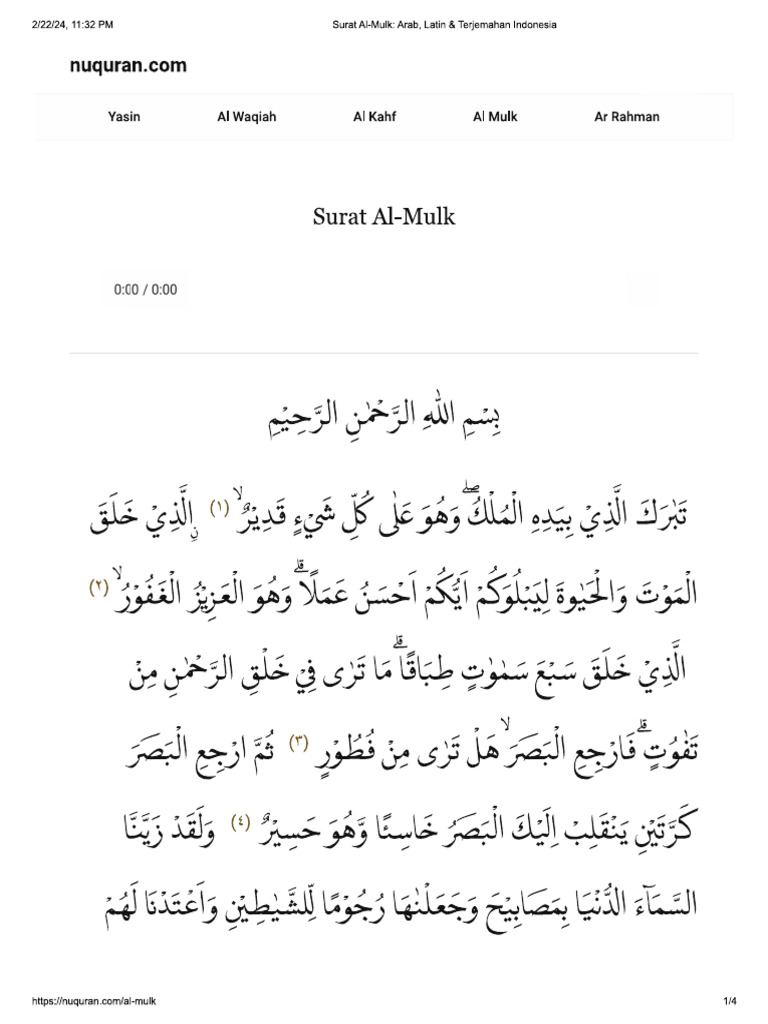 2/22/24, 11:32 PM Surat Al-Mulk: Arab, Latin & Terjemahan Indonesia
nuquran.com
Yasin Al Waqiah Al Kahf Al Mulk Ar Rahman
Surat Al-Mulk
0:00 / 0:00
بِسْمِ اللّٰهِ الرَّحْمٰنِ الرَّحِيْمِ
تَبٰرَكَ الَّذِيْ بِيَدِهِ الْمُلْكُۖ وَهُوَ عَلٰى كُلِّ شَيْءٍ قَدِيْرٌۙ (١) ۨالَّذِيْ خَلَقَ
الْمَوْتَ وَالْحَيٰوةَ لِيَبْلُوَكُمْ اَيُّكُمْ اَحْسَنُ عَمَلًاۗ وَهُوَ الْعَزِيْزُ الْغَفُوْرُۙ (٢)
الَّذِيْ خَلَقَ سَبْعَ سَمٰوٰتٍ طِبَاقًاۗ مَا تَرٰى فِيْ خَلْقِ الرَّحْمٰنِ مِنْ
تَفٰوُتٍۗ فَارْجِعِ الْبَصَرَۙ هَلْ تَرٰى مِنْ فُطُوْرٍ (٣) ثُمَّ ارْجِعِ الْبَصَرَ
كَرَّتَيْنِ يَنْقَلِبْ اِلَيْكَ الْبَصَرُ خَاسِئًا وَّهُوَ حَسِيْرٌ (٤) وَلَقَدْ زَيَّنَّا
السَّمَاۤءَ الدُّنْيَا بِمَصَابِيْحَ وَجَعَلْنٰهَا رُجُوْمًا لِّلشَّيٰطِيْنِ وَاَعْتَدْنَا لَهُمْ
https://nuquran.com/al-mulk 1/4